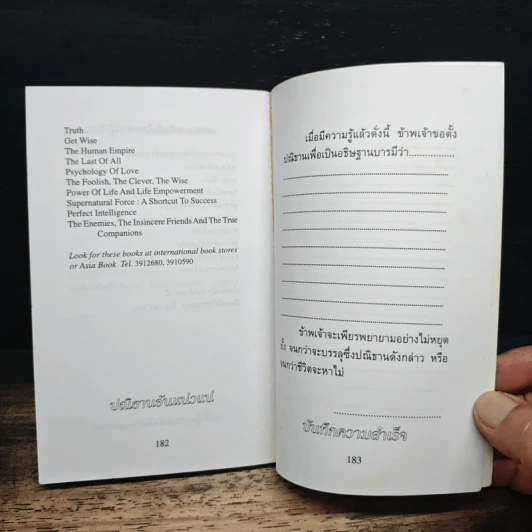 Truth
Get Wise
The Human Empire
The Last Of All
Psychology Of Love
The Foolish, The Clever, The Wise
Power Of Life And Life Empowerment
Supernatural Force : A Shortcut To Success
Perfect Intelligence
The Enemies, The Insincere Friends And The True
Companions
Look for these books at international book stores
or Asia Book Tel. 3912680, 3910590
ปณิธานอันแน่วแน่
182
เมื่อมีความรู้แล้วดั่งนี้ ข้าพเจ้าขอตั้ง
ปณิธานเพื่อเป็นอธิษฐานบารมีว่า..............
ข้าพเจ้าจะเพียรพยายามอย่างไม่หยุด
ยั้ง จนกว่าจะบรรลุซึ่งปณิธานดังกล่าว หรือ
จนกว่าชีวิตจะหาไม่
บันทึกความสำเร็จ
183